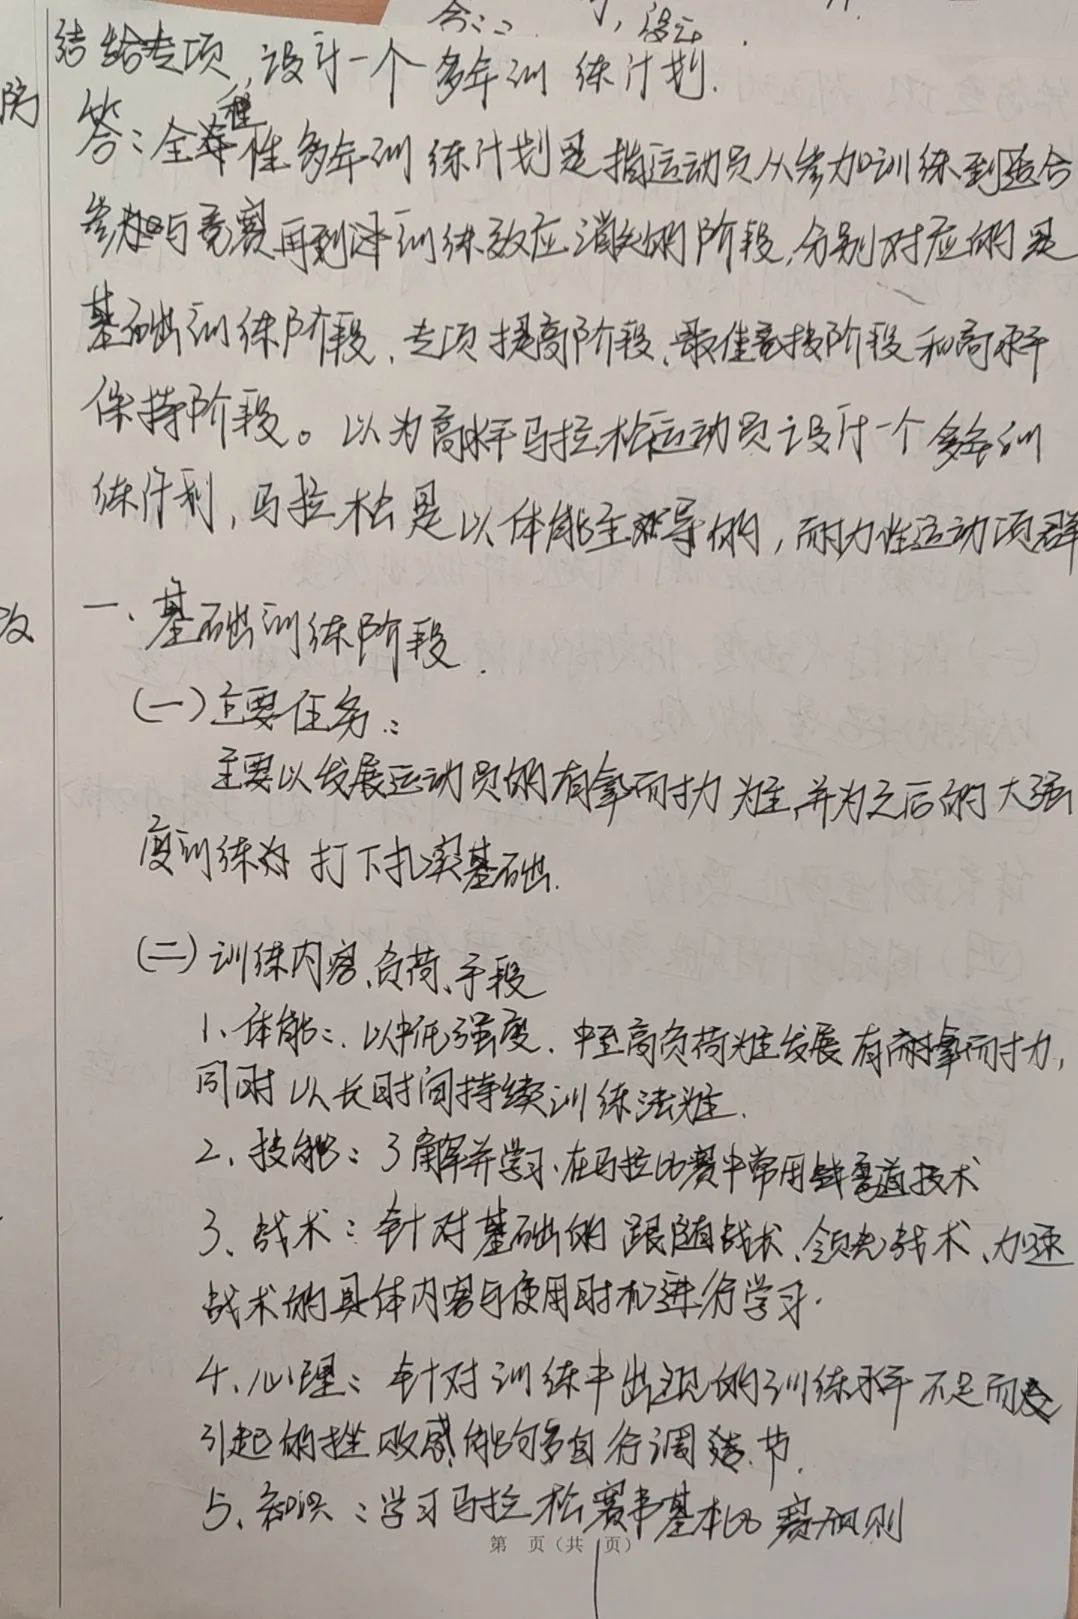 答：：
结给专项，设计一个多年训练计划.
答：全程性多年训练计划是指运动员从参加训练到适合
参加与竞赛再到训练效应消失的阶段,分别对应的是
基础训练阶段、专项提高阶段、最佳竞技阶段和高水平
保持阶段。以为高水平马拉松运动员设计一个多年训
练计划,马拉松是以体能主导的,耐力性运动项群
一、基础训练阶段.
(一)主要任务：
主要以发展运动员的有拿耐力为主,并为之后的大强
度训练打下扎实基础.
(二)训练内容、负荷、手段
1、体能：以中低强度、中至高负荷为主发展有拿耐力,
同时以长时间持续训练法为主.
2、技能：了解并学习在马拉比赛中常用弯道技术
3、战术：针对基础的跟随战术、领先战术、加速
战术的具体内容与使用时机进行学习.
4、心理：针对训练中出现的训练水平不足而
引起的挫败感能够自行调节.
5、知识：学习马拉松赛事基本比赛细则
第 页(共 页)
防
及